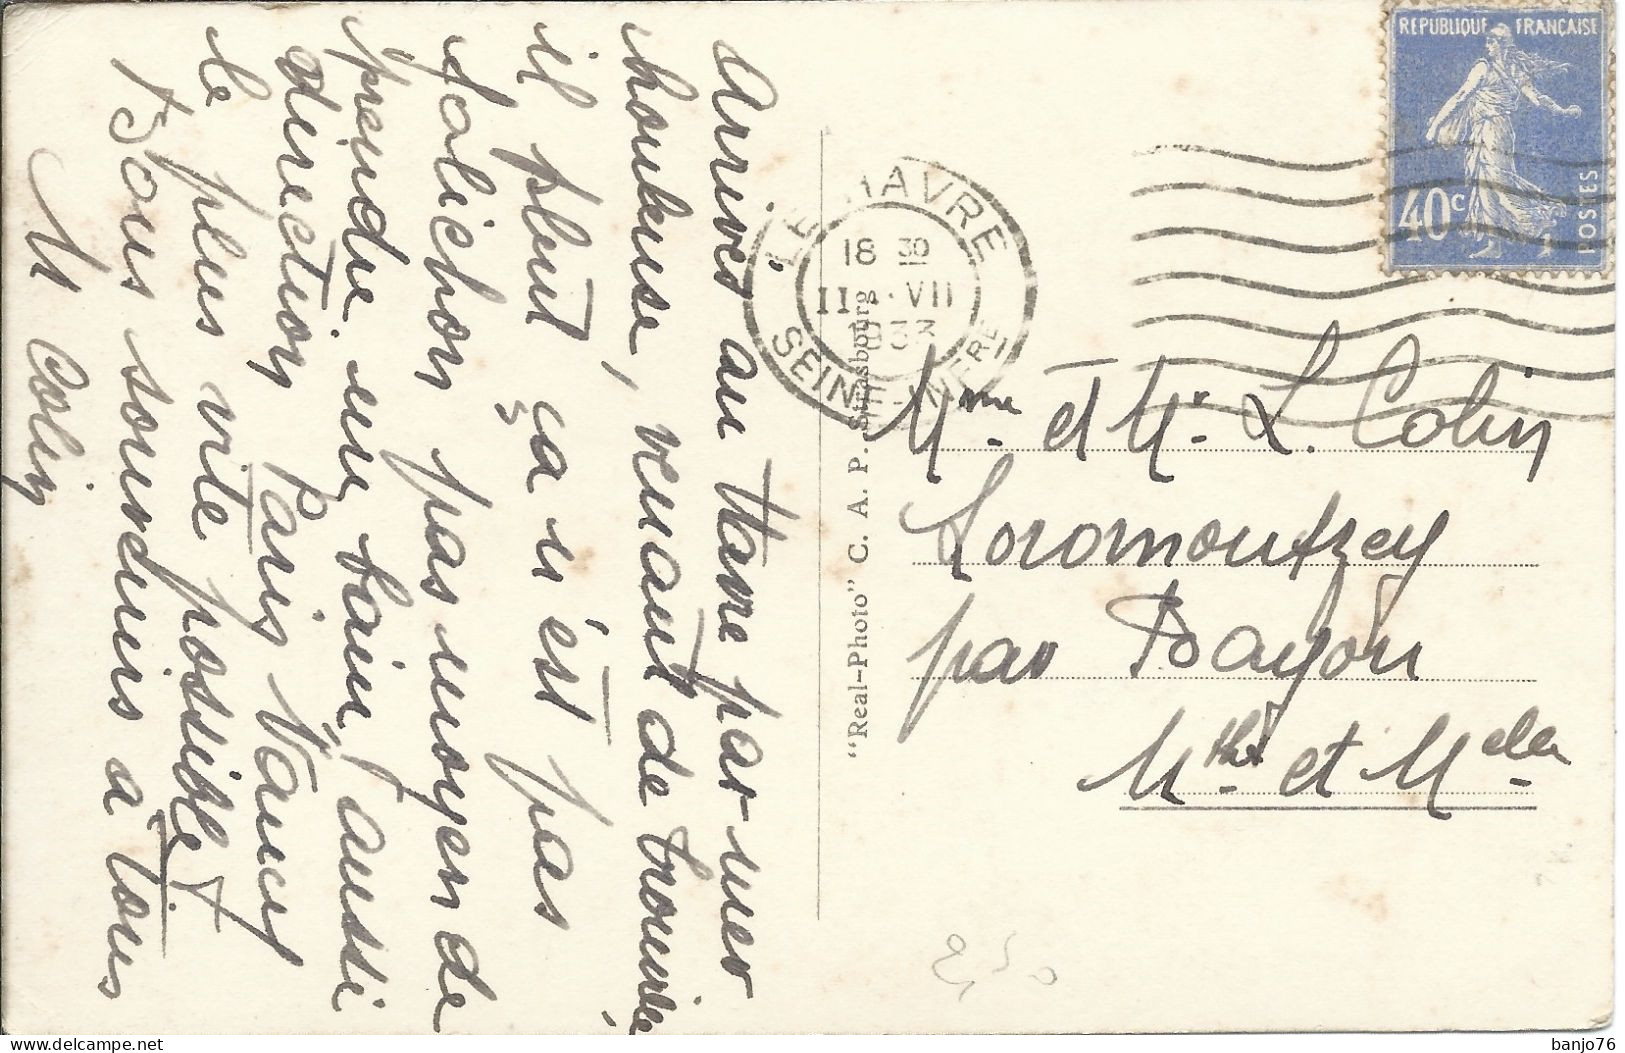 Arrivés au Havre par mer
houleuse, venant de Trouville
il pleut ça n'est pas
folichon pas moyen de
prendre un bain, aussi
direction Paris Nancy
le plus vite possible
Bons souvenirs à tous
M Colin
"Real-Photo" C. A. P. Strasbourg
REPUBLIQUE FRANÇAISE
40c
POSTES
LE HAVRE
18 30
11 · VII
1933
SEINE-INFRE
Mme et Mr. L. Colin
Loromontzey
par Bayon
Mthe et Melle
banjo76